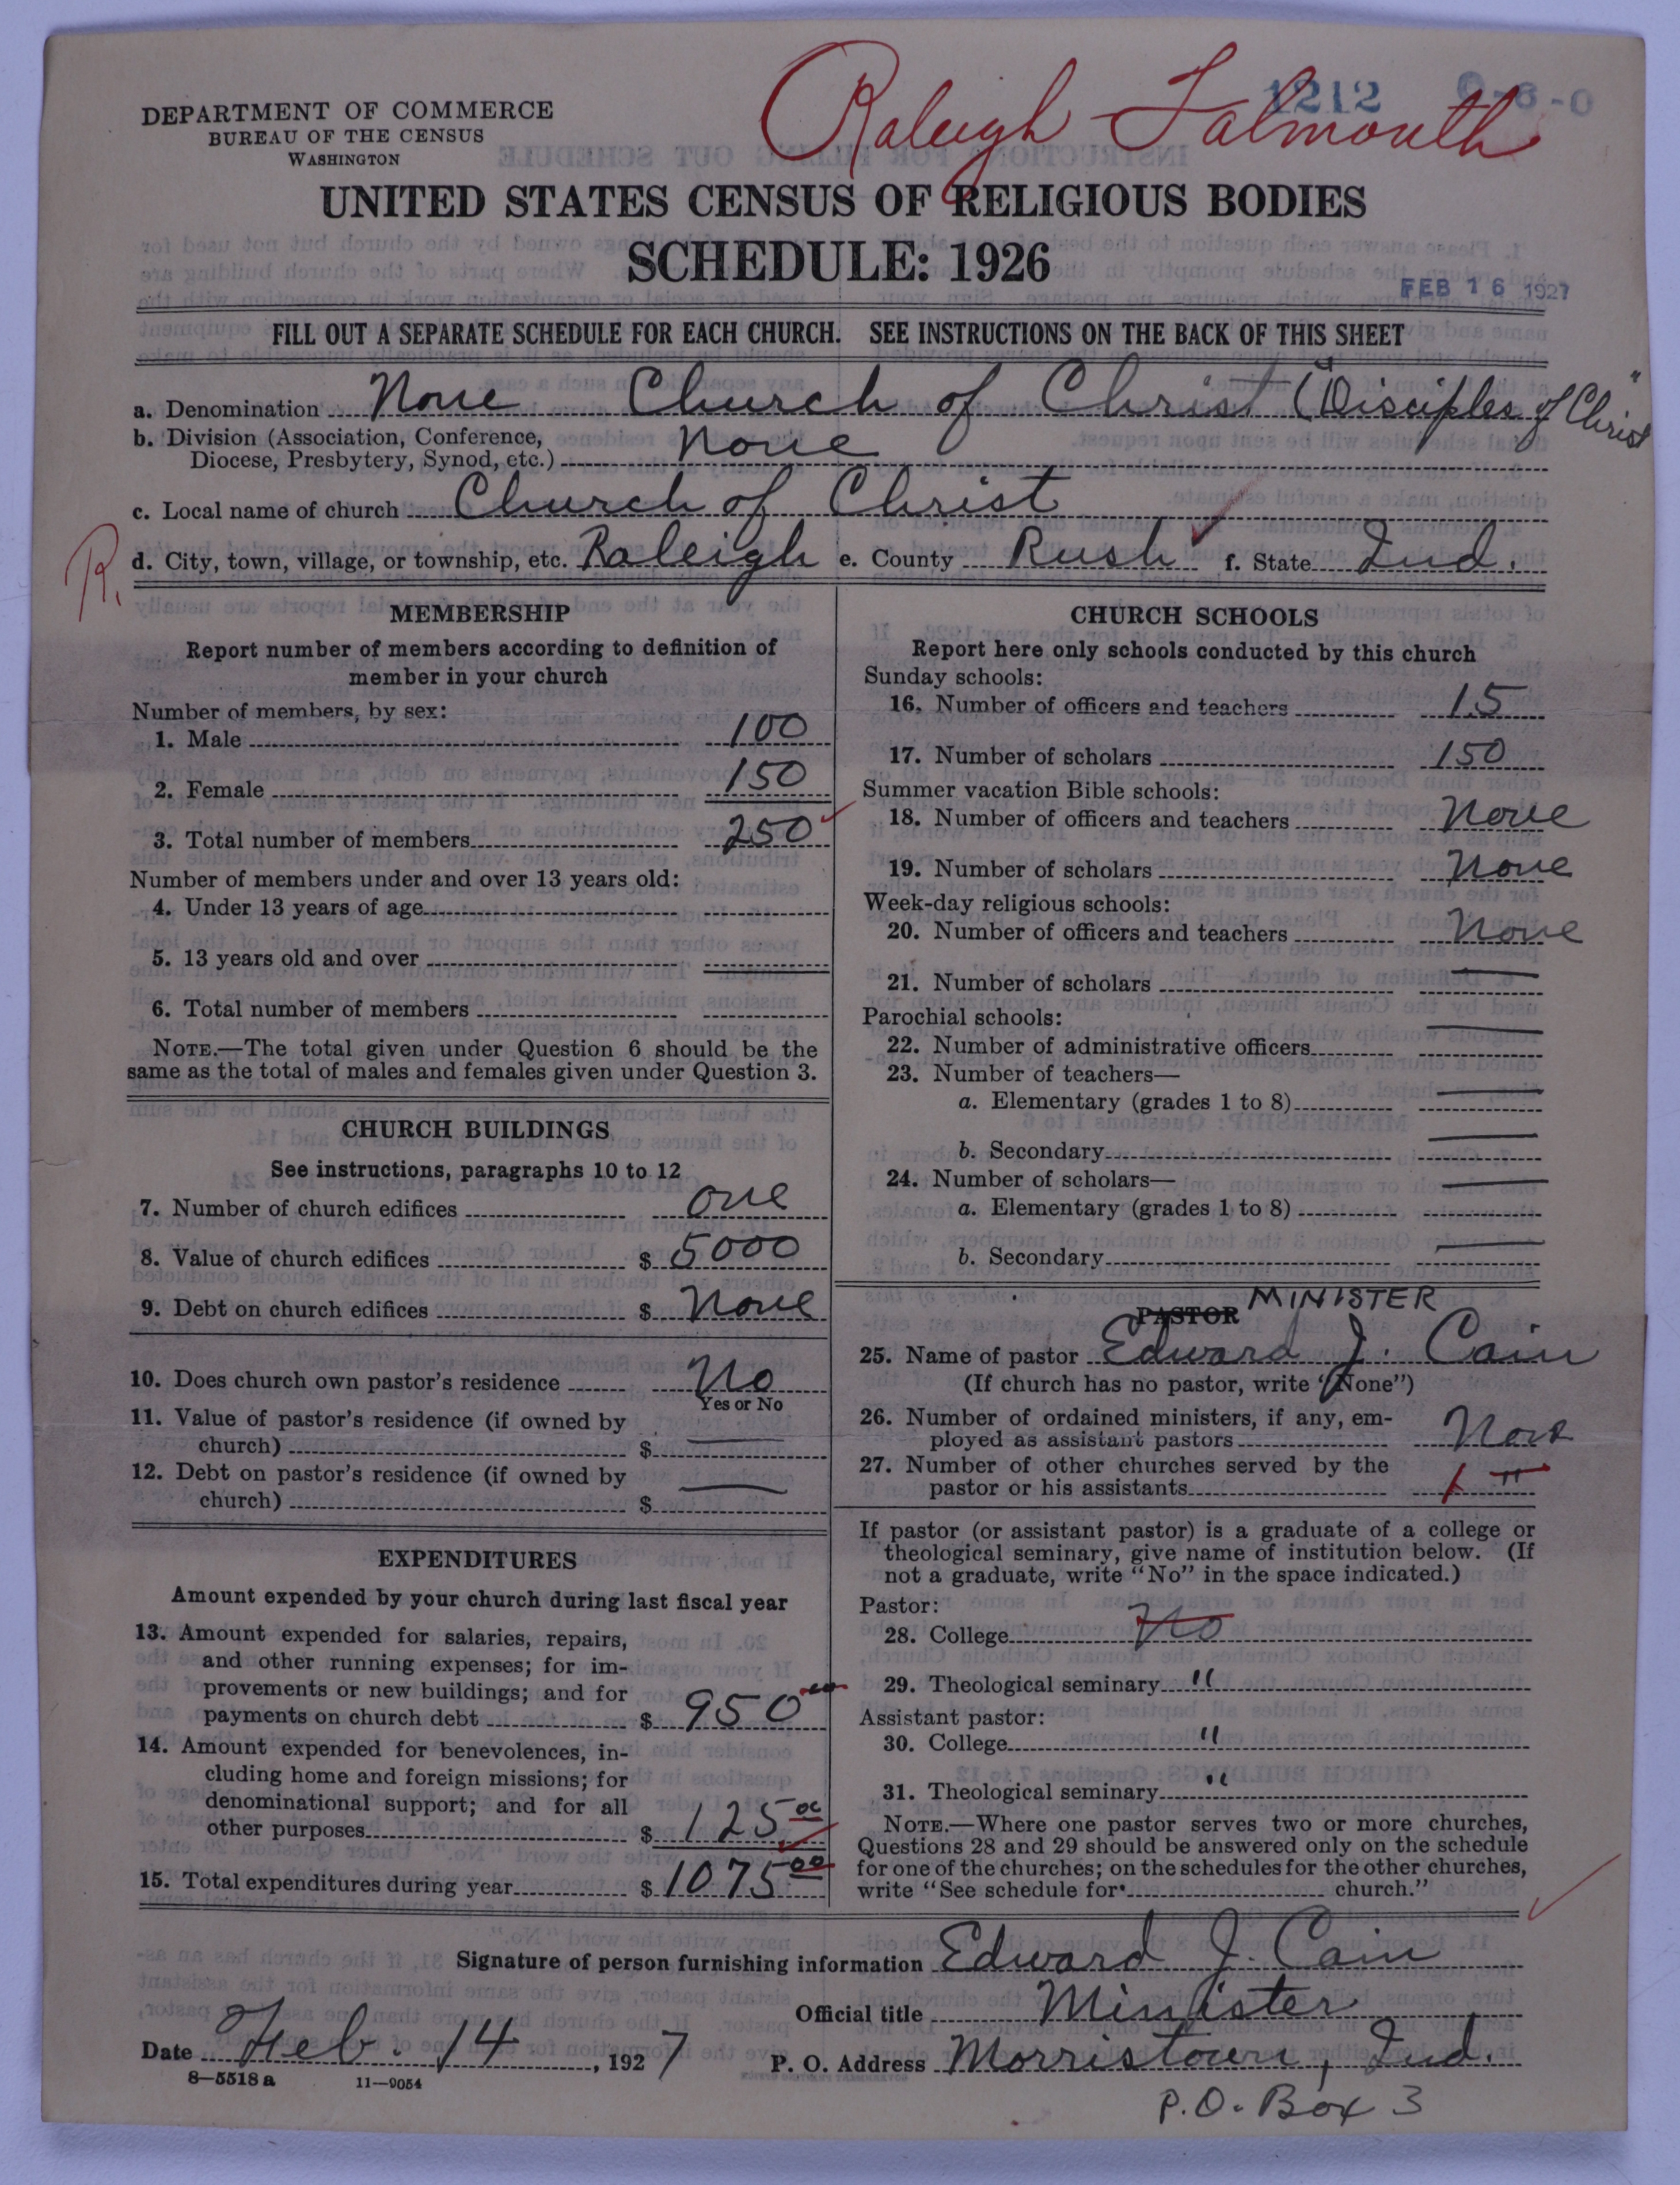 Raleigh Falmouth
1212
DEPARTMENT OF COMMERCE
BUREAU OF THE CENSUS
WASHINGTON
UNITED STATES CENSUS OF RELIGIOUS BODIES
SCHEDULE: 1926
FEB 16 1927
FILL OUT A SEPARATE SCHEDULE FOR EACH CHURCH. SEE INSTRUCTIONS ON THE BACK OF THIS SHEET
a. Denomination None Church of Christ ("Disciples of Christ"
b. Division (Association, Conference,
Diocese, Presbytery, Synod, etc.) None
c. Local name of church Church of Christ
R.
d. City, town, village, or township, etc. Raleigh e. County Rush f. State Ind.
MEMBERSHIP
Report number of members according to definition of
member in your church
Number of members, by sex:
1. Male 100
2. Female 150
3. Total number of members 250
Number of members under and over 13 years old:
4. Under 13 years of age
5. 13 years old and over
6. Total number of members
NOTE.—The total given under Question 6 should be the
same as the total of males and females given under Question 3.
CHURCH BUILDINGS
See instructions, paragraphs 10 to 12
7. Number of church edifices one
8. Value of church edifices $ 5000
9. Debt on church edifices $ None
10. Does church own pastor's residence No
Yes or No
11. Value of pastor's residence (if owned by
church) $ —
12. Debt on pastor's residence (if owned by
church) $ —
EXPENDITURES
Amount expended by your church during last fiscal year
13. Amount expended for salaries, repairs,
and other running expenses; for im-
provements or new buildings; and for
payments on church debt $ 950
14. Amount expended for benevolences, in-
cluding home and foreign missions; for
denominational support; and for all
other purposes $ 125 00
15. Total expenditures during year $ 1075 00
CHURCH SCHOOLS
Report here only schools conducted by this church
Sunday schools:
16. Number of officers and teachers 15
17. Number of scholars 150
Summer vacation Bible schools:
18. Number of officers and teachers None
19. Number of scholars None
Week-day religious schools:
20. Number of officers and teachers None
21. Number of scholars —
Parochial schools:
22. Number of administrative officers —
23. Number of teachers—
a. Elementary (grades 1 to 8) —
b. Secondary —
24. Number of scholars—
a. Elementary (grades 1 to 8) —
b. Secondary —
PASTOR MINISTER
25. Name of pastor Edward J. Cain
(If church has no pastor, write "None")
26. Number of ordained ministers, if any, em-
ployed as assistant pastors None
27. Number of other churches served by the
pastor or his assistants 1 "
If pastor (or assistant pastor) is a graduate of a college or
theological seminary, give name of institution below. (If
not a graduate, write "No" in the space indicated.)
Pastor:
28. College No
29. Theological seminary "
Assistant pastor:
30. College "
31. Theological seminary "
NOTE.—Where one pastor serves two or more churches,
Questions 28 and 29 should be answered only on the schedule
for one of the churches; on the schedules for the other churches,
write "See schedule for church."
Signature of person furnishing information Edward J. Cain
Official title Minister
Date Feb. 14, 1927 P. O. Address Morristown, Ind.
8—5518 a 11—9054
P.O. Box 3